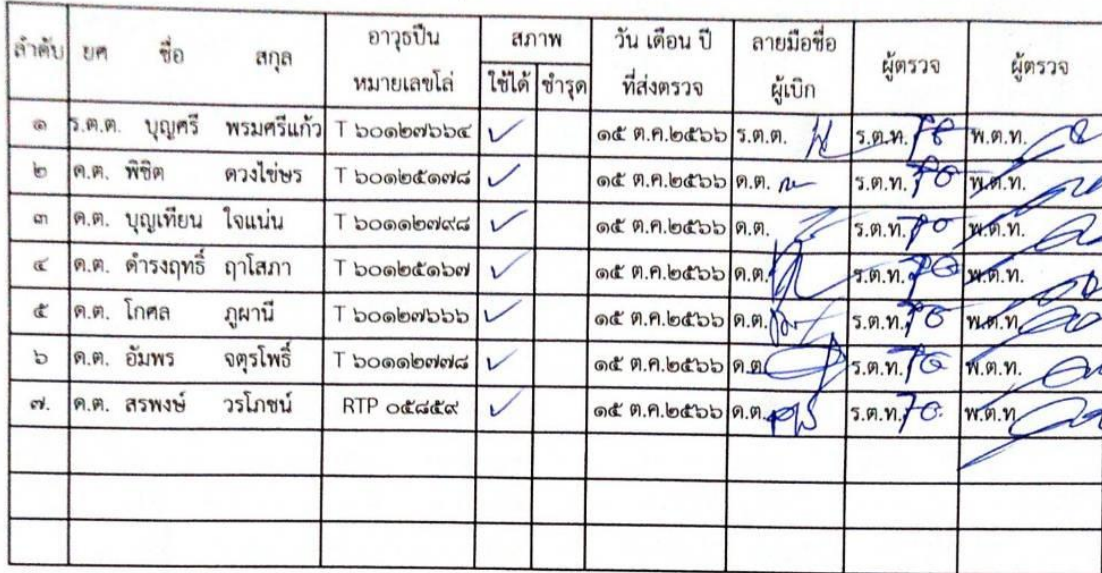 ลำดับ ยศ ชื่อ สกุล อาวุธปืน หมายเลขโล่ สภาพ ใช้ได้ ชำรุด วัน เดือน ปี ที่ส่งตรวจ ลายมือชื่อ ผู้เบิก ผู้ตรวจ ผู้ตรวจ
๑ ร.ต.ต. บุญศรี พรมศรีแก้ว T ๖๐๑๒๗๖๖๔ ✓ ๑๕ ต.ค.๒๕๖๖ ร.ต.ต. ร.ต.ท. พ.ต.ท.
๒ ด.ต. พิชิต ดวงไข่ษร T ๖๐๑๒๕๑๗๘ ✓ ๑๕ ต.ค.๒๕๖๖ ด.ต. ร.ต.ท. พ.ต.ท.
๓ ด.ต. บุญเทียน ใจแน่น T ๖๐๑๑๒๗๙๘ ✓ ๑๕ ต.ค.๒๕๖๖ ด.ต. ร.ต.ท. พ.ต.ท.
๔ ด.ต. ดำรงฤทธิ์ ฤาโสภา T ๖๐๑๒๕๑๖๗ ✓ ๑๕ ต.ค.๒๕๖๖ ด.ต. ร.ต.ท. พ.ต.ท.
๕ ด.ต. โกศล ภูผานี T ๖๐๑๒๗๖๖๖ ✓ ๑๕ ต.ค.๒๕๖๖ ด.ต. ร.ต.ท. พ.ต.ท.
๖ ด.ต. อัมพร จตุรโพธิ์ T ๖๐๑๑๒๗๗๘ ✓ ๑๕ ต.ค.๒๕๖๖ ด.ต. ร.ต.ท. พ.ต.ท.
๗. ด.ต. สรพงษ์ วรโภชน์ RTP ๐๕๘๕๙ ✓ ๑๕ ต.ค.๒๕๖๖ ด.ต. ร.ต.ท. พ.ต.ท.